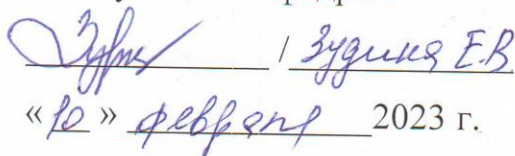 / Зудина Е.В
« 10 » февраля 2023 г.